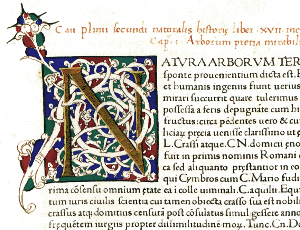 Caii plinii secundi naturalis historię liber .xvii. inc
Cap. i. Arborum pretia mirabil
NATVRA ARBORVM TER
sponte prouenientium dicta est.
et humanis ingeniis fiunt uerius
mirari succurrit quare tulerimus
possessa a feris depugnante cum hi
fructus: circa pędentes uero & cu
liciaq; precia uenisse clarissimo ut p
L. Crassi atque .CN. domicii eno
fuit in primis nominis Romani
ca sed aliquanto prestantior in co
qui Cymbros cum C. Mario fudi
rima cōsensu omnium ętate ea i colle uiminali. C. aquilii. Equit
ium iuris ciuilis scientia cui tamen obiecta crasso sua est nobi
crassus atq; domitius censurā post cōsulatus simul gessere anno
frequētem iurgiis propter dissimilitudinē Tunc. Cn. Do